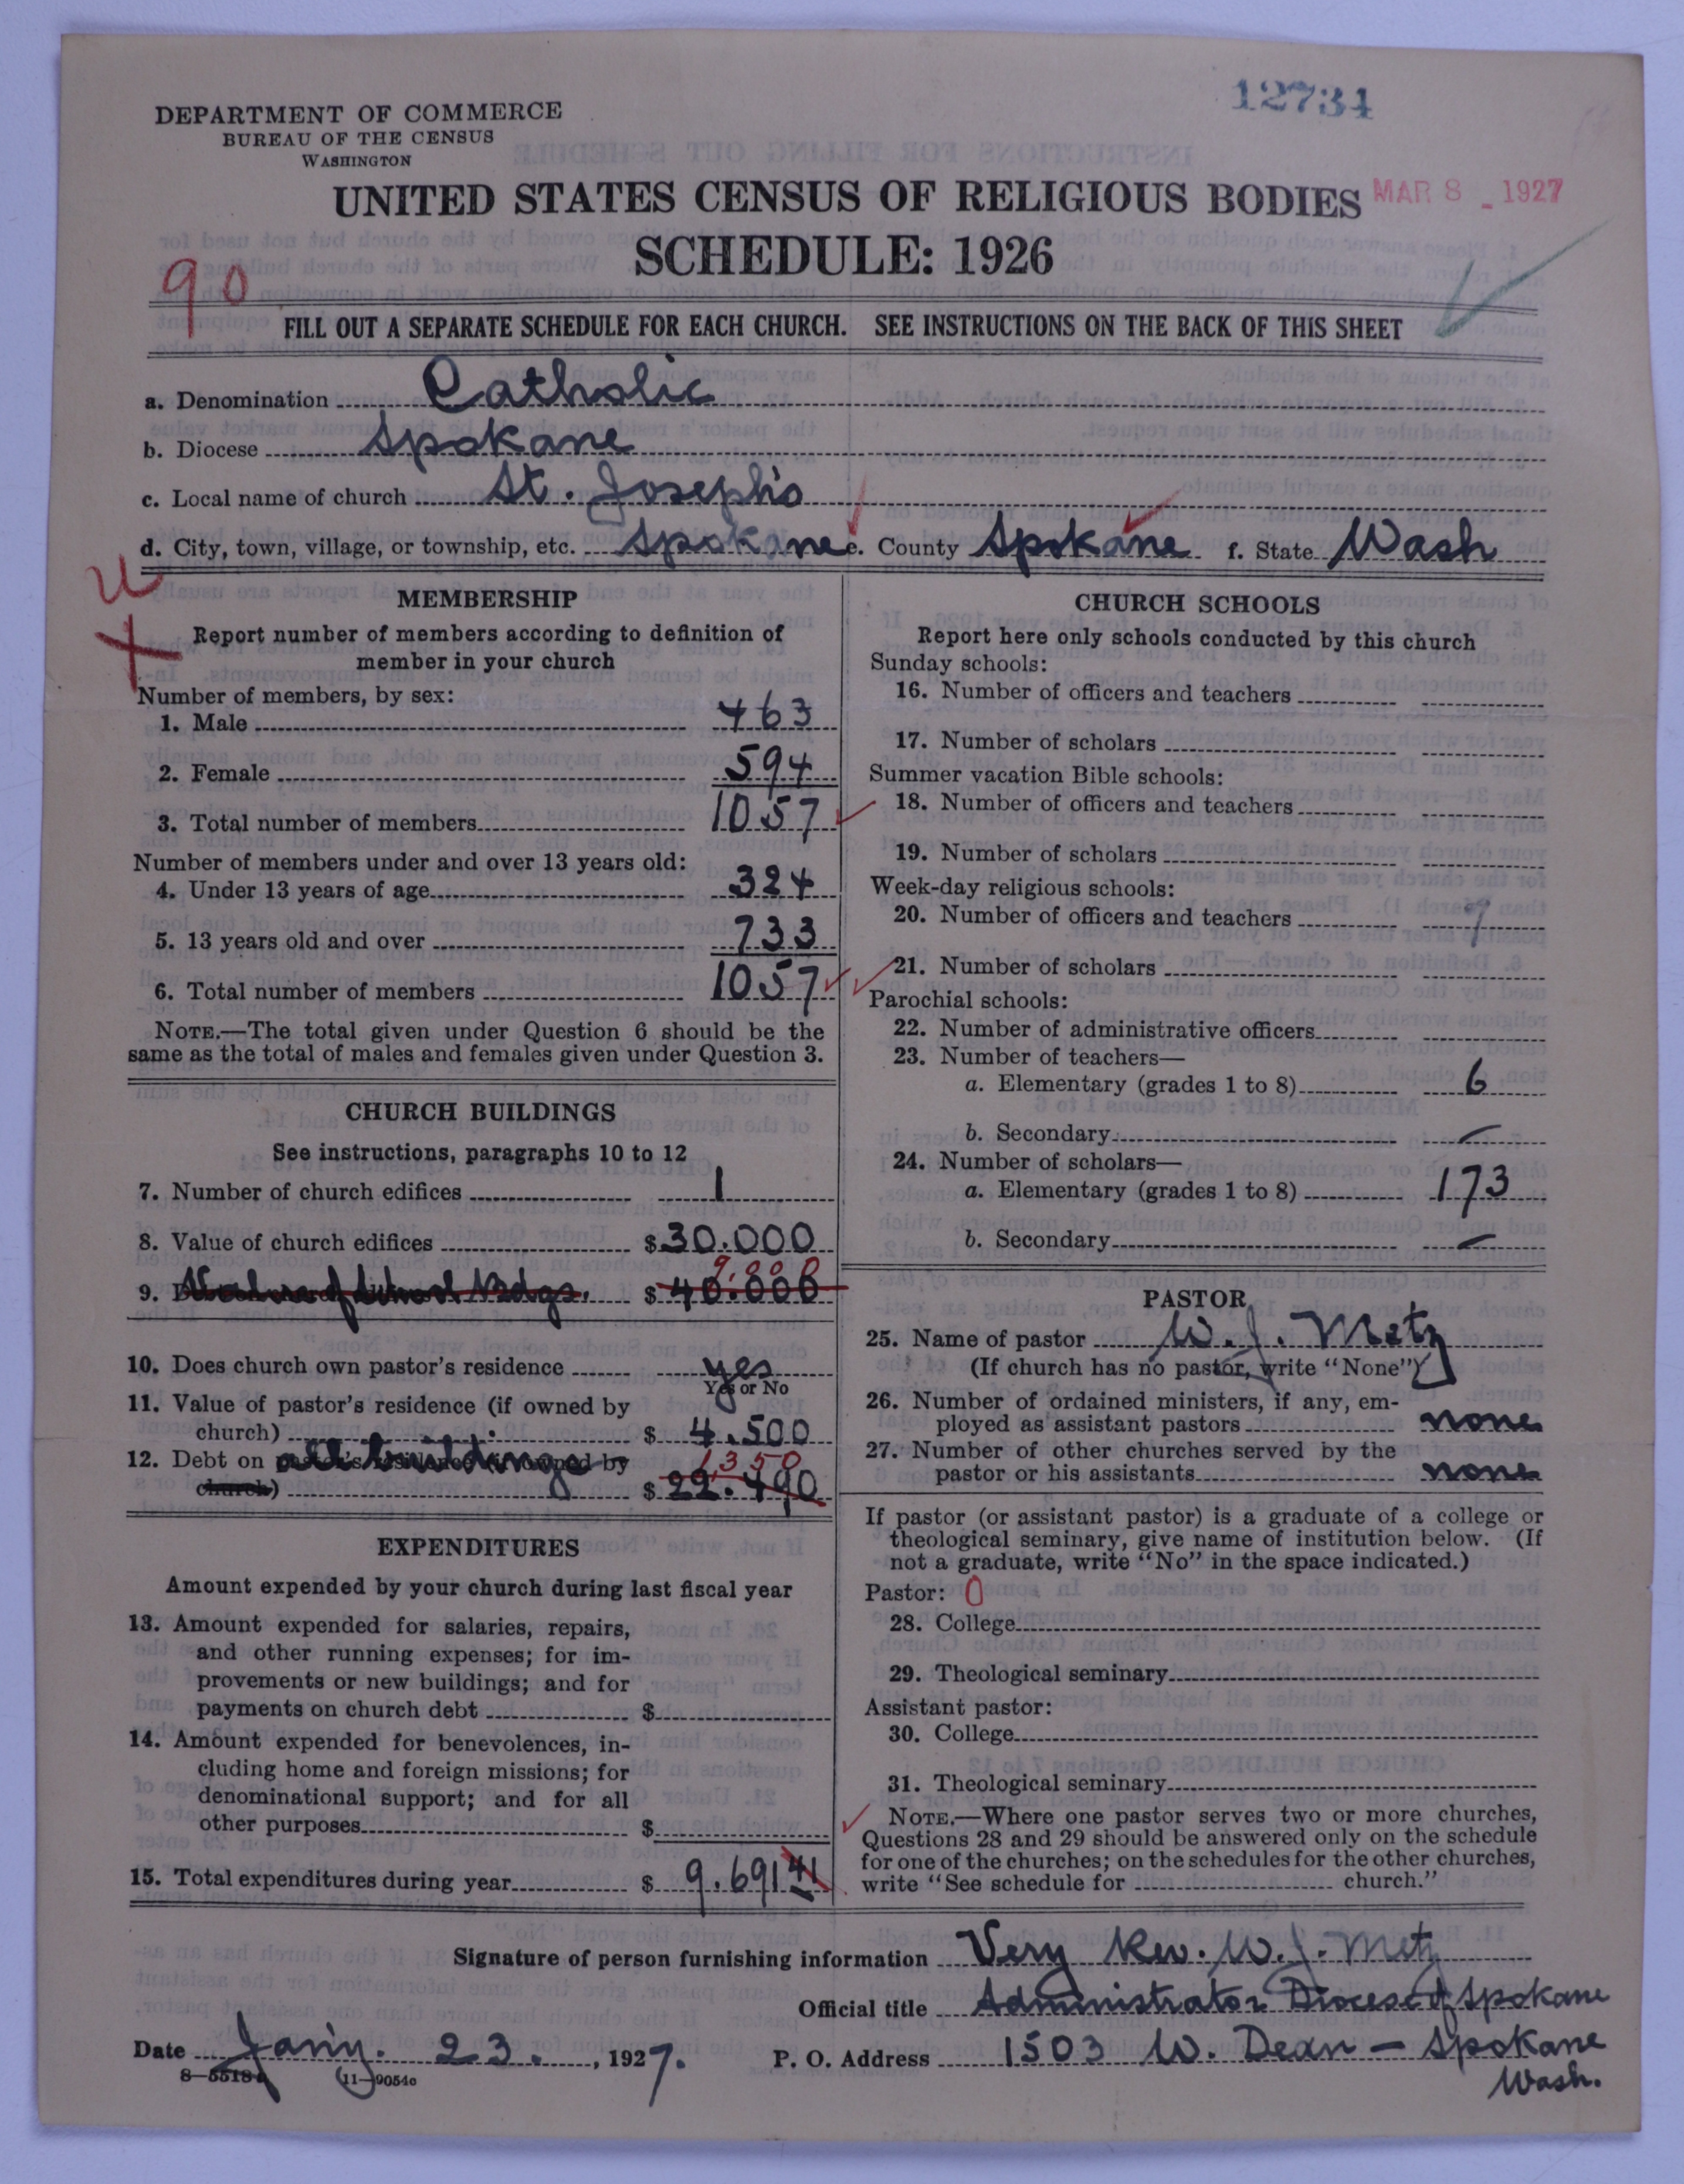 12734
DEPARTMENT OF COMMERCE
BUREAU OF THE CENSUS
WASHINGTON
UNITED STATES CENSUS OF RELIGIOUS BODIES
MAR 8 - 1927
SCHEDULE: 1926
90
FILL OUT A SEPARATE SCHEDULE FOR EACH CHURCH. SEE INSTRUCTIONS ON THE BACK OF THIS SHEET
a. Denomination Catholic
b. Diocese Spokane
c. Local name of church St. Joseph's
d. City, town, village, or township, etc. Spokane e. County Spokane f. State Wash
MEMBERSHIP
Report number of members according to definition of
member in your church
Number of members, by sex:
1. Male 463
2. Female 594
3. Total number of members 1057
Number of members under and over 13 years old:
4. Under 13 years of age 324
5. 13 years old and over 733
6. Total number of members 1057
NOTE.—The total given under Question 6 should be the
same as the total of males and females given under Question 3.
CHURCH BUILDINGS
See instructions, paragraphs 10 to 12
7. Number of church edifices 1
8. Value of church edifices $30.000
9,000
9. Value of School Bldgs. $40.000
10. Does church own pastor's residence yes
Yes or No
11. Value of pastor's residence (if owned by
church) $ 4.500
12. Debt on all buildings
1,350
church) $ 22.490
EXPENDITURES
Amount expended by your church during last fiscal year
13. Amount expended for salaries, repairs,
and other running expenses; for im-
provements or new buildings; and for
payments on church debt $
14. Amount expended for benevolences, in-
cluding home and foreign missions; for
denominational support; and for all
other purposes $
15. Total expenditures during year $ 9.691 41
CHURCH SCHOOLS
Report here only schools conducted by this church
Sunday schools:
16. Number of officers and teachers
17. Number of scholars
Summer vacation Bible schools:
18. Number of officers and teachers
19. Number of scholars
Week-day religious schools:
20. Number of officers and teachers
21. Number of scholars
Parochial schools:
22. Number of administrative officers
23. Number of teachers—
a. Elementary (grades 1 to 8) 6
b. Secondary —
24. Number of scholars—
a. Elementary (grades 1 to 8) 173
b. Secondary —
PASTOR
25. Name of pastor W. J. Metz
(If church has no pastor, write "None")
26. Number of ordained ministers, if any, em-
ployed as assistant pastors none
27. Number of other churches served by the
pastor or his assistants none
If pastor (or assistant pastor) is a graduate of a college or
theological seminary, give name of institution below. (If
not a graduate, write "No" in the space indicated.)
Pastor: 0
28. College
29. Theological seminary
Assistant pastor:
30. College
31. Theological seminary
NOTE.—Where one pastor serves two or more churches,
Questions 28 and 29 should be answered only on the schedule
for one of the churches; on the schedules for the other churches,
write "See schedule for church."
Signature of person furnishing information Very Rev. W. J. Metz
Official title Administrator Diocese of Spokane
Date Jan'y. 23. , 1927. P. O. Address 1503 W. Dean — Spokane
Wash.
8—5518a 11—9054c